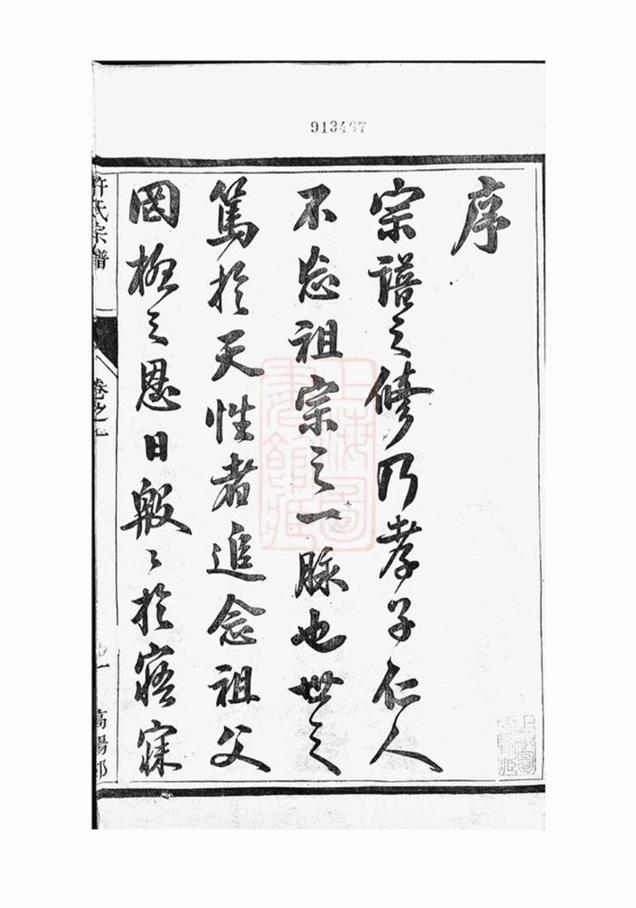 913467
序
宗譜之修乃孝子仁人
不忘祖宗之一脉也世之
篤於天性者追念祖父
罔極之恩日殷〻於寤寐
許氏宗譜
卷之一
一
高陽郡
上海圖書館藏